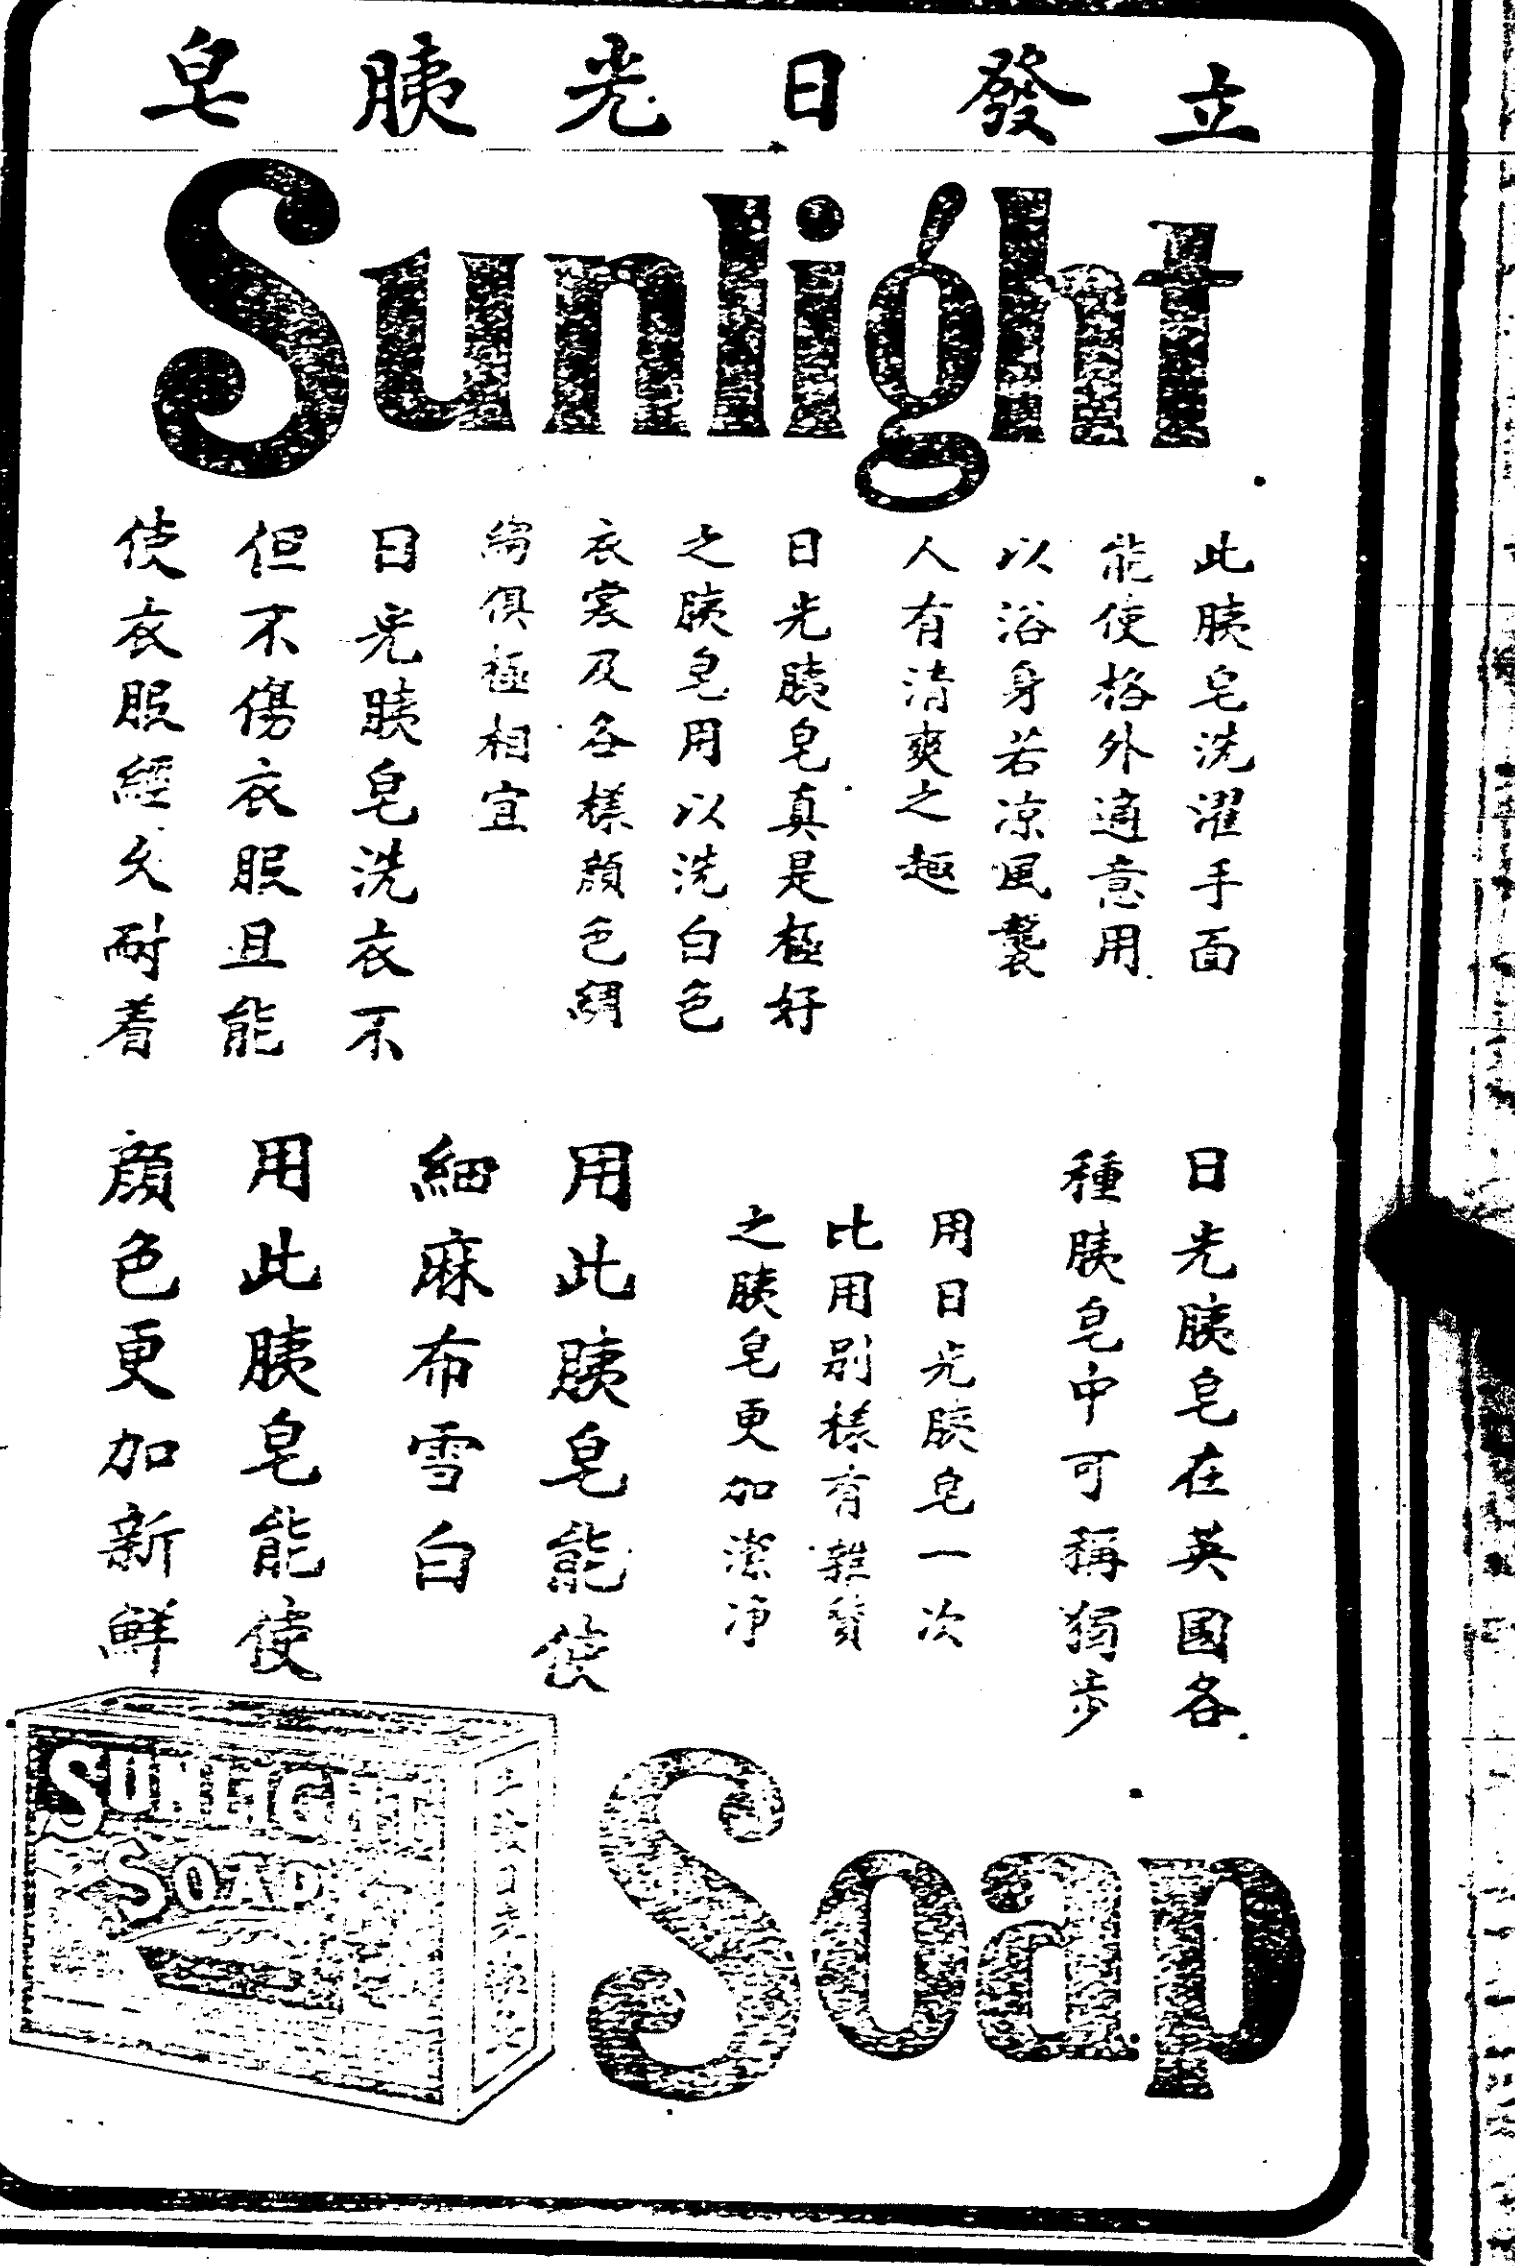 立發日光胰皂
Sunlight
此胰皂洗濯手面
能使格外適意用
以浴身若涼風襲
人有清爽之趣
日光胰皂真是極好
之胰皂用以洗白色
衣裳及各樣顏色綢
俱極相宜
日光胰皂洗衣不
但不傷衣服且能
使衣服經久耐着
日光胰皂在英國各
種胰皂中可稱獨步
用日光胰皂一次
比用別樣有雜質
之胰皂更加潔净
用此胰皂能使
細麻布雪白
用此胰皂能使
顏色更加新鮮
SUNLIGHT
SOAP
立發日光胰皂
Soap